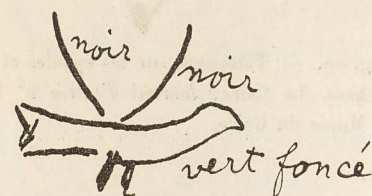 noir
noir
vert foncé